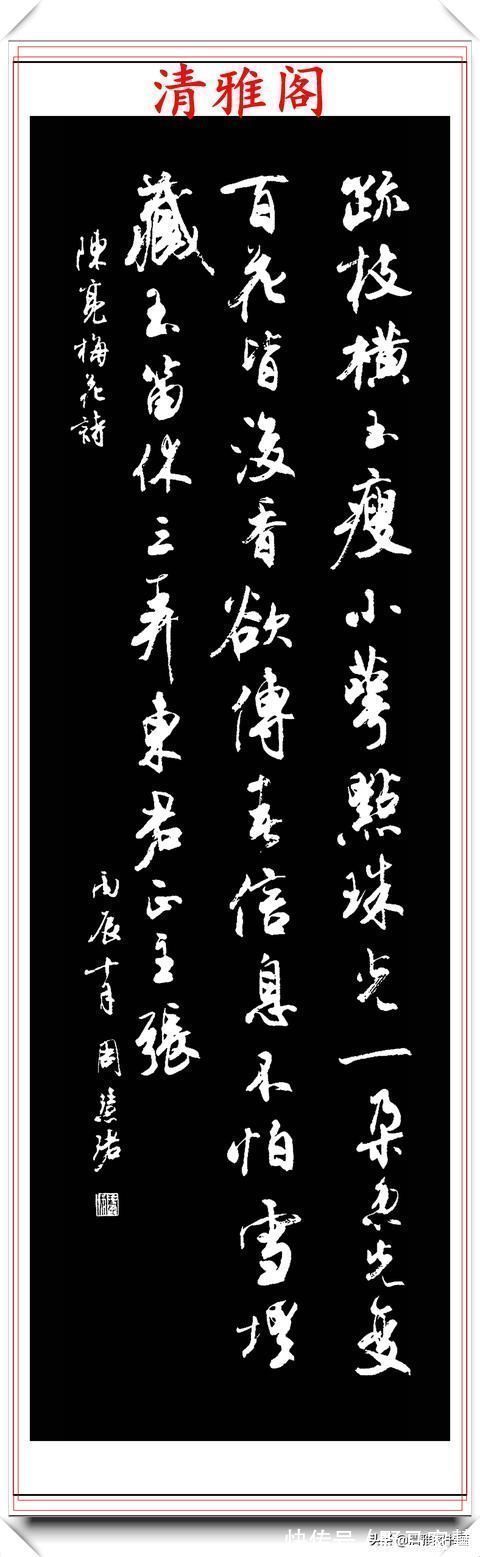 清雅阁
疏枝橫玉瘦小萼點珠光一朵忽先变
百花皆後香欲傳春信息不怕雪埋
藏玉笛休三弄東君正主張
陳亮梅花詩
丙辰十月 周慧珺
快传号
头条